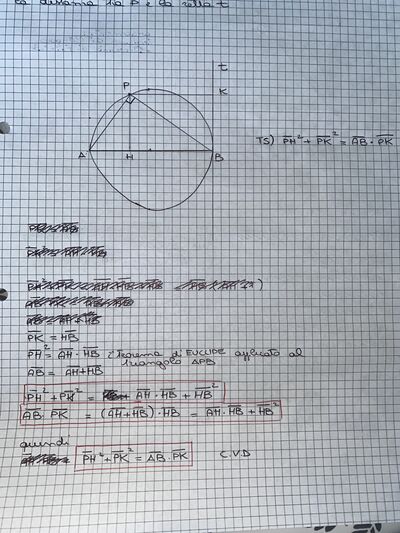 la distanza tra P e la retta t
t
P
K
A
H
B
TS) PH² + PK² = AB · PK
PK = HB
PH² = AH · HB 2 teorema di EUCLIDE applicato al
triangolo APB
AB = AH+HB
PH² + PK² = AH · HB + HB²
AB · PK = (AH+HB) · HB = AH · HB + HB²
quindi
PH² + PK² = AB · PK C.V.D